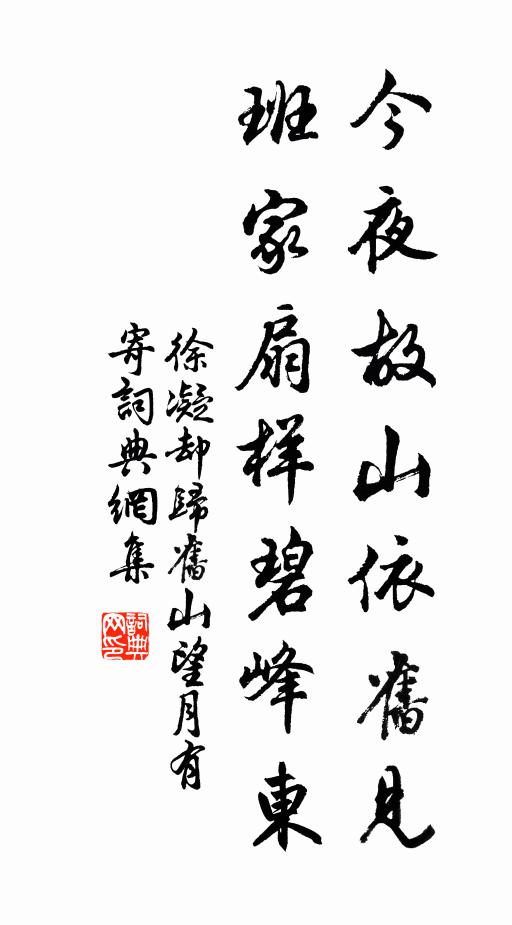 今夜故山依舊見
班家扇様碧峰東
徐凝却歸舊山望月有
寄詞典網集
詞典网印